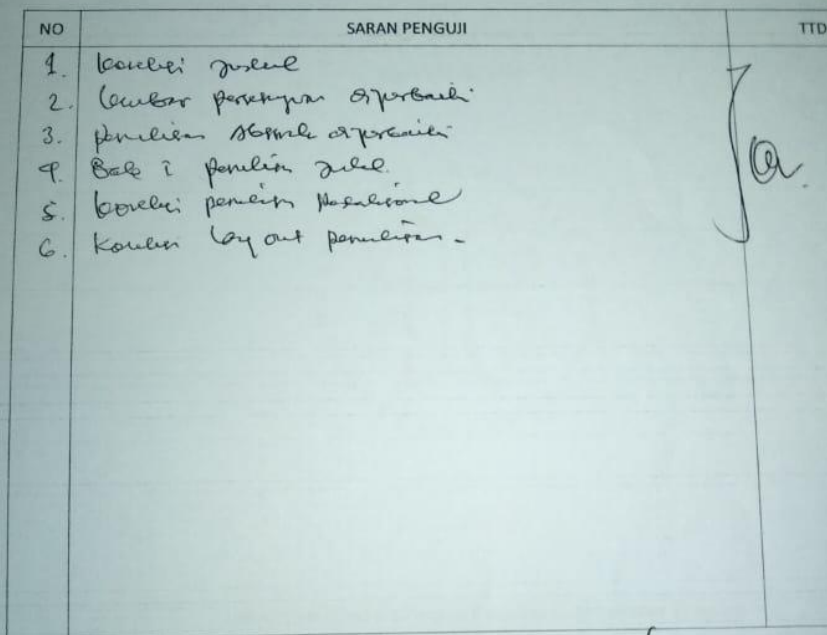 NO SARAN PENGUJI TTD
1. Koreksi judul
2. Lembar persetujuan diperbaiki
3. penulisan abstrak diperbaiki
4. Bab I penulisan judul.
5. koreksi penulisan
6. Koreksi lay out penulisan -